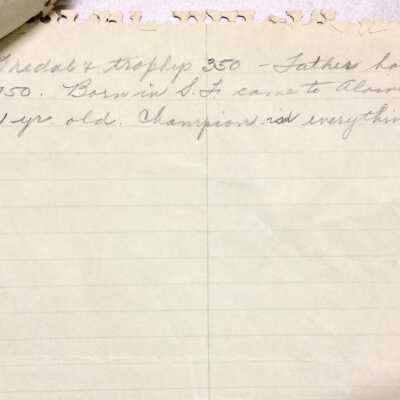 Medal & trophys 350 - Father ha
50. Born in S.F. came to Alam
1 yr old. Champion in everythin